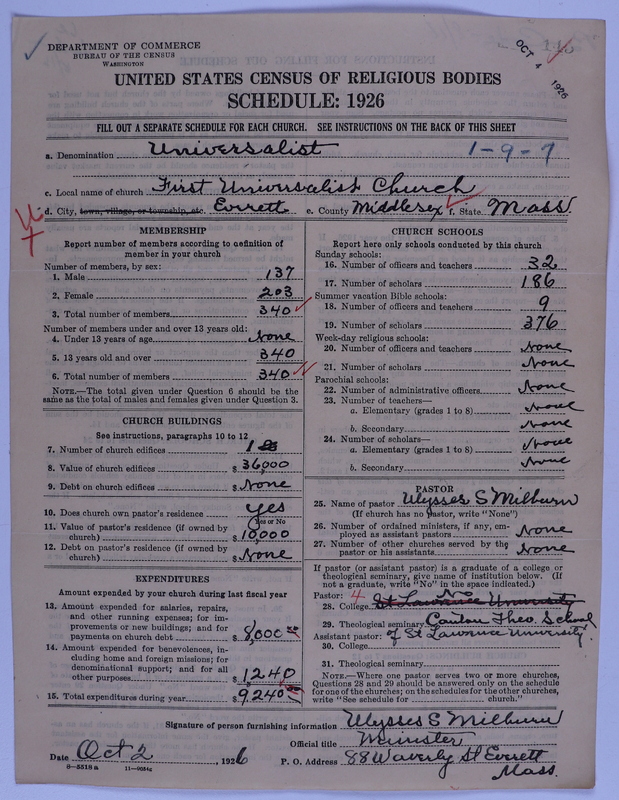 DEPARTMENT OF COMMERCE
BUREAU OF THE CENSUS
WASHINGTON
OCT 4 1926
UNITED STATES CENSUS OF RELIGIOUS BODIES
SCHEDULE: 1926
FILL OUT A SEPARATE SCHEDULE FOR EACH CHURCH. SEE INSTRUCTIONS ON THE BACK OF THIS SHEET
a. Denomination Universalist 1-9-7
c. Local name of church First Universalist Church
d. City, town, village, or township, etc. Everett e. County Middlesex f. State Mass
MEMBERSHIP
Report number of members according to definition of
member in your church
Number of members, by sex:
1. Male 137
2. Female 203
3. Total number of members 340
Number of members under and over 13 years old:
4. Under 13 years of age None
5. 13 years old and over 340
6. Total number of members 340
NOTE.—The total given under Question 6 should be the
same as the total of males and females given under Question 3.
CHURCH BUILDINGS
See instructions, paragraphs 10 to 12
7. Number of church edifices 1
8. Value of church edifices $ 36,000
9. Debt on church edifices $ None
10. Does church own pastor's residence yes
Yes or No
11. Value of pastor's residence (if owned by
church) $ 10,000
12. Debt on pastor's residence (if owned by
church) $ None
EXPENDITURES
Amount expended by your church during last fiscal year
13. Amount expended for salaries, repairs,
and other running expenses; for im-
provements or new buildings; and for
payments on church debt $ 8,000
14. Amount expended for benevolences, in-
cluding home and foreign missions; for
denominational support; and for all
other purposes $ 1240
15. Total expenditures during year $ 9,240
CHURCH SCHOOLS
Report here only schools conducted by this church
Sunday schools:
16. Number of officers and teachers 32
17. Number of scholars 186
Summer vacation Bible schools:
18. Number of officers and teachers 9
19. Number of scholars 376
Week-day religious schools:
20. Number of officers and teachers None
21. Number of scholars None
Parochial schools:
22. Number of administrative officers None
23. Number of teachers—
a. Elementary (grades 1 to 8) None
b. Secondary None
24. Number of scholars—
a. Elementary (grades 1 to 8) None
b. Secondary None
PASTOR
25. Name of pastor Ulysses S Milburn
(If church has no pastor, write "None")
26. Number of ordained ministers, if any, em-
ployed as assistant pastors None
27. Number of other churches served by the
pastor or his assistants None
If pastor (or assistant pastor) is a graduate of a college or
theological seminary, give name of institution below. (If
not a graduate, write "No" in the space indicated.)
Pastor: 4 No
28. College St Lawrence University
29. Theological seminary Canton Theo. School
Assistant pastor: of St Lawrence University.
30. College
31. Theological seminary
NOTE.—Where one pastor serves two or more churches,
Questions 28 and 29 should be answered only on the schedule
for one of the churches; on the schedules for the other churches,
write "See schedule for church."
Signature of person furnishing information Ulysses S Milburn
Official title Minister
Date Oct 2, 1926 P. O. Address 88 Waverly St Everett
Mass.
8-5518 a 11-9034c